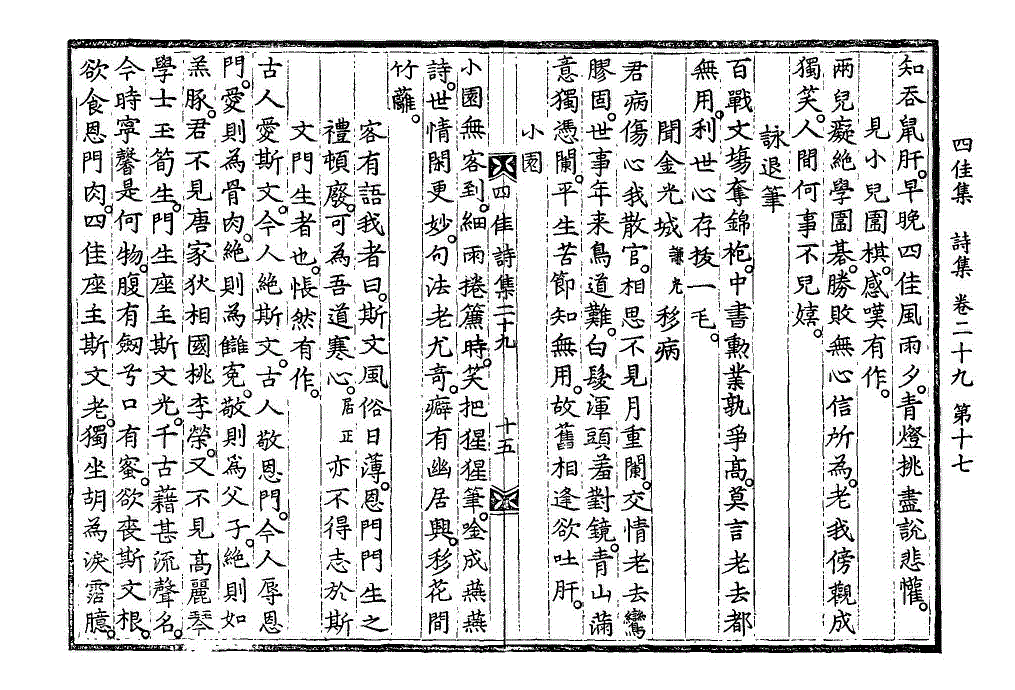 四佳集　詩集 卷二十九 第十七
知吞鼠肝。早晚四佳風雨夕。青燈挑盡說悲懽。
見小兒圍棋。感嘆有作。
兩兒癡絶學圍碁。勝敗無心信所為。老我傍觀成
獨笑。人間何事不兒嬉。
詠退筆
百戰文塲奪錦袍。中書勳業孰爭高。莫言老去都
無用。利世心存拔一毛。
聞金光城 謙光 移病
君病傷心我散官。相思不見月重闌。交情老去鸞
膠固。世事年来鳥道難。白髮渾頭羞對鏡。青山滿
意獨憑闌。平生苦節知無用。故舊相逢欲吐肝。
小園
四佳詩集二十九　十五
小園無客到。細雨捲簾時。笑把猩猩筆。唫成燕燕
詩。世情閑更妙。句法老尤奇。癖有幽居興。移花間
竹蘺。
客有語我者曰。斯文風俗日薄。恩門門生之
禮頓廢。可為吾道寒心。居正亦不得志於斯
文門生者也。悵然有作。
古人愛斯文。今人絶斯文。古人敬恩門。今人辱恩
門。愛則為骨肉。絶則為讎寃。敬則爲父子。絶則如
羔豚。君不見唐家狄相國桃李榮。又不見高麗琴
學士玉筍生。門生座主斯文光。千古藉甚流聲名。
今時寧馨是何物。腹有劒兮口有蜜。欲喪斯文根。
欲食恩門肉。四佳座主斯文老。獨坐胡為淚霑臆。